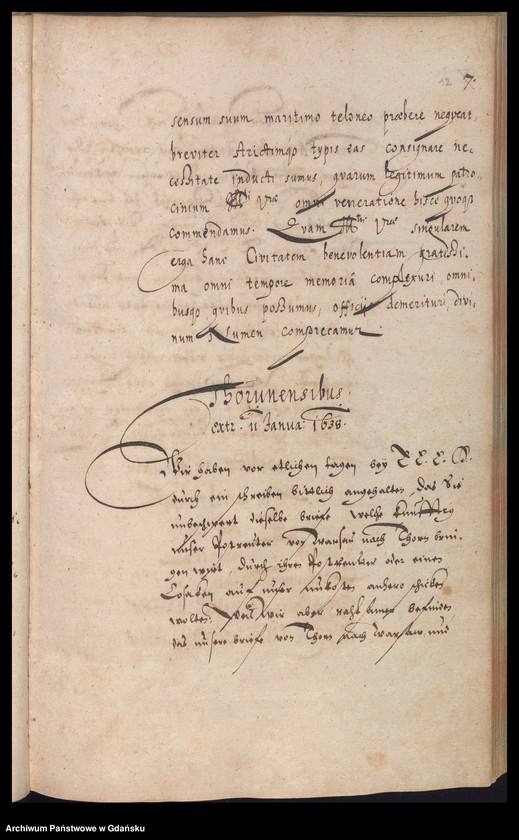 12 7.
sensum suum maritimo teloneo præbere neqveat,
breviter strictimqƺ typis eas consignare ne-
cessitate inducti sumus, qvarum legitimum patro-
cinium Vræ omni veneratione hisce qvoqƺ
commendamus. Qvam Vræ singularem
erga hanc Civitatem benevolentiam gratissi-
ma omni tempore memoriâ complexuri, omni-
busqƺ qvibus possumus, officijs demerituri, divi-
num Numen comprecamur.
Thorunensibus.
extr. 11 Janua: 1638.
Wir haben vor etlichen tagen bey E. E. E. W.
durch ein schreiben bittlich angehalten, das Sie
unbeschwert dieselbe briefe welche
unser Postreuter von Warsau nach Thorn brin-
gen wirt, durch ihren Postreuter oder einen
Cosaken auf unser unkosten anhero schicken
wolten. Weil wir aber befinden
das unsere briefe von Thorn nach Warsaw und
Archiwum Państwowe w Gdańsku